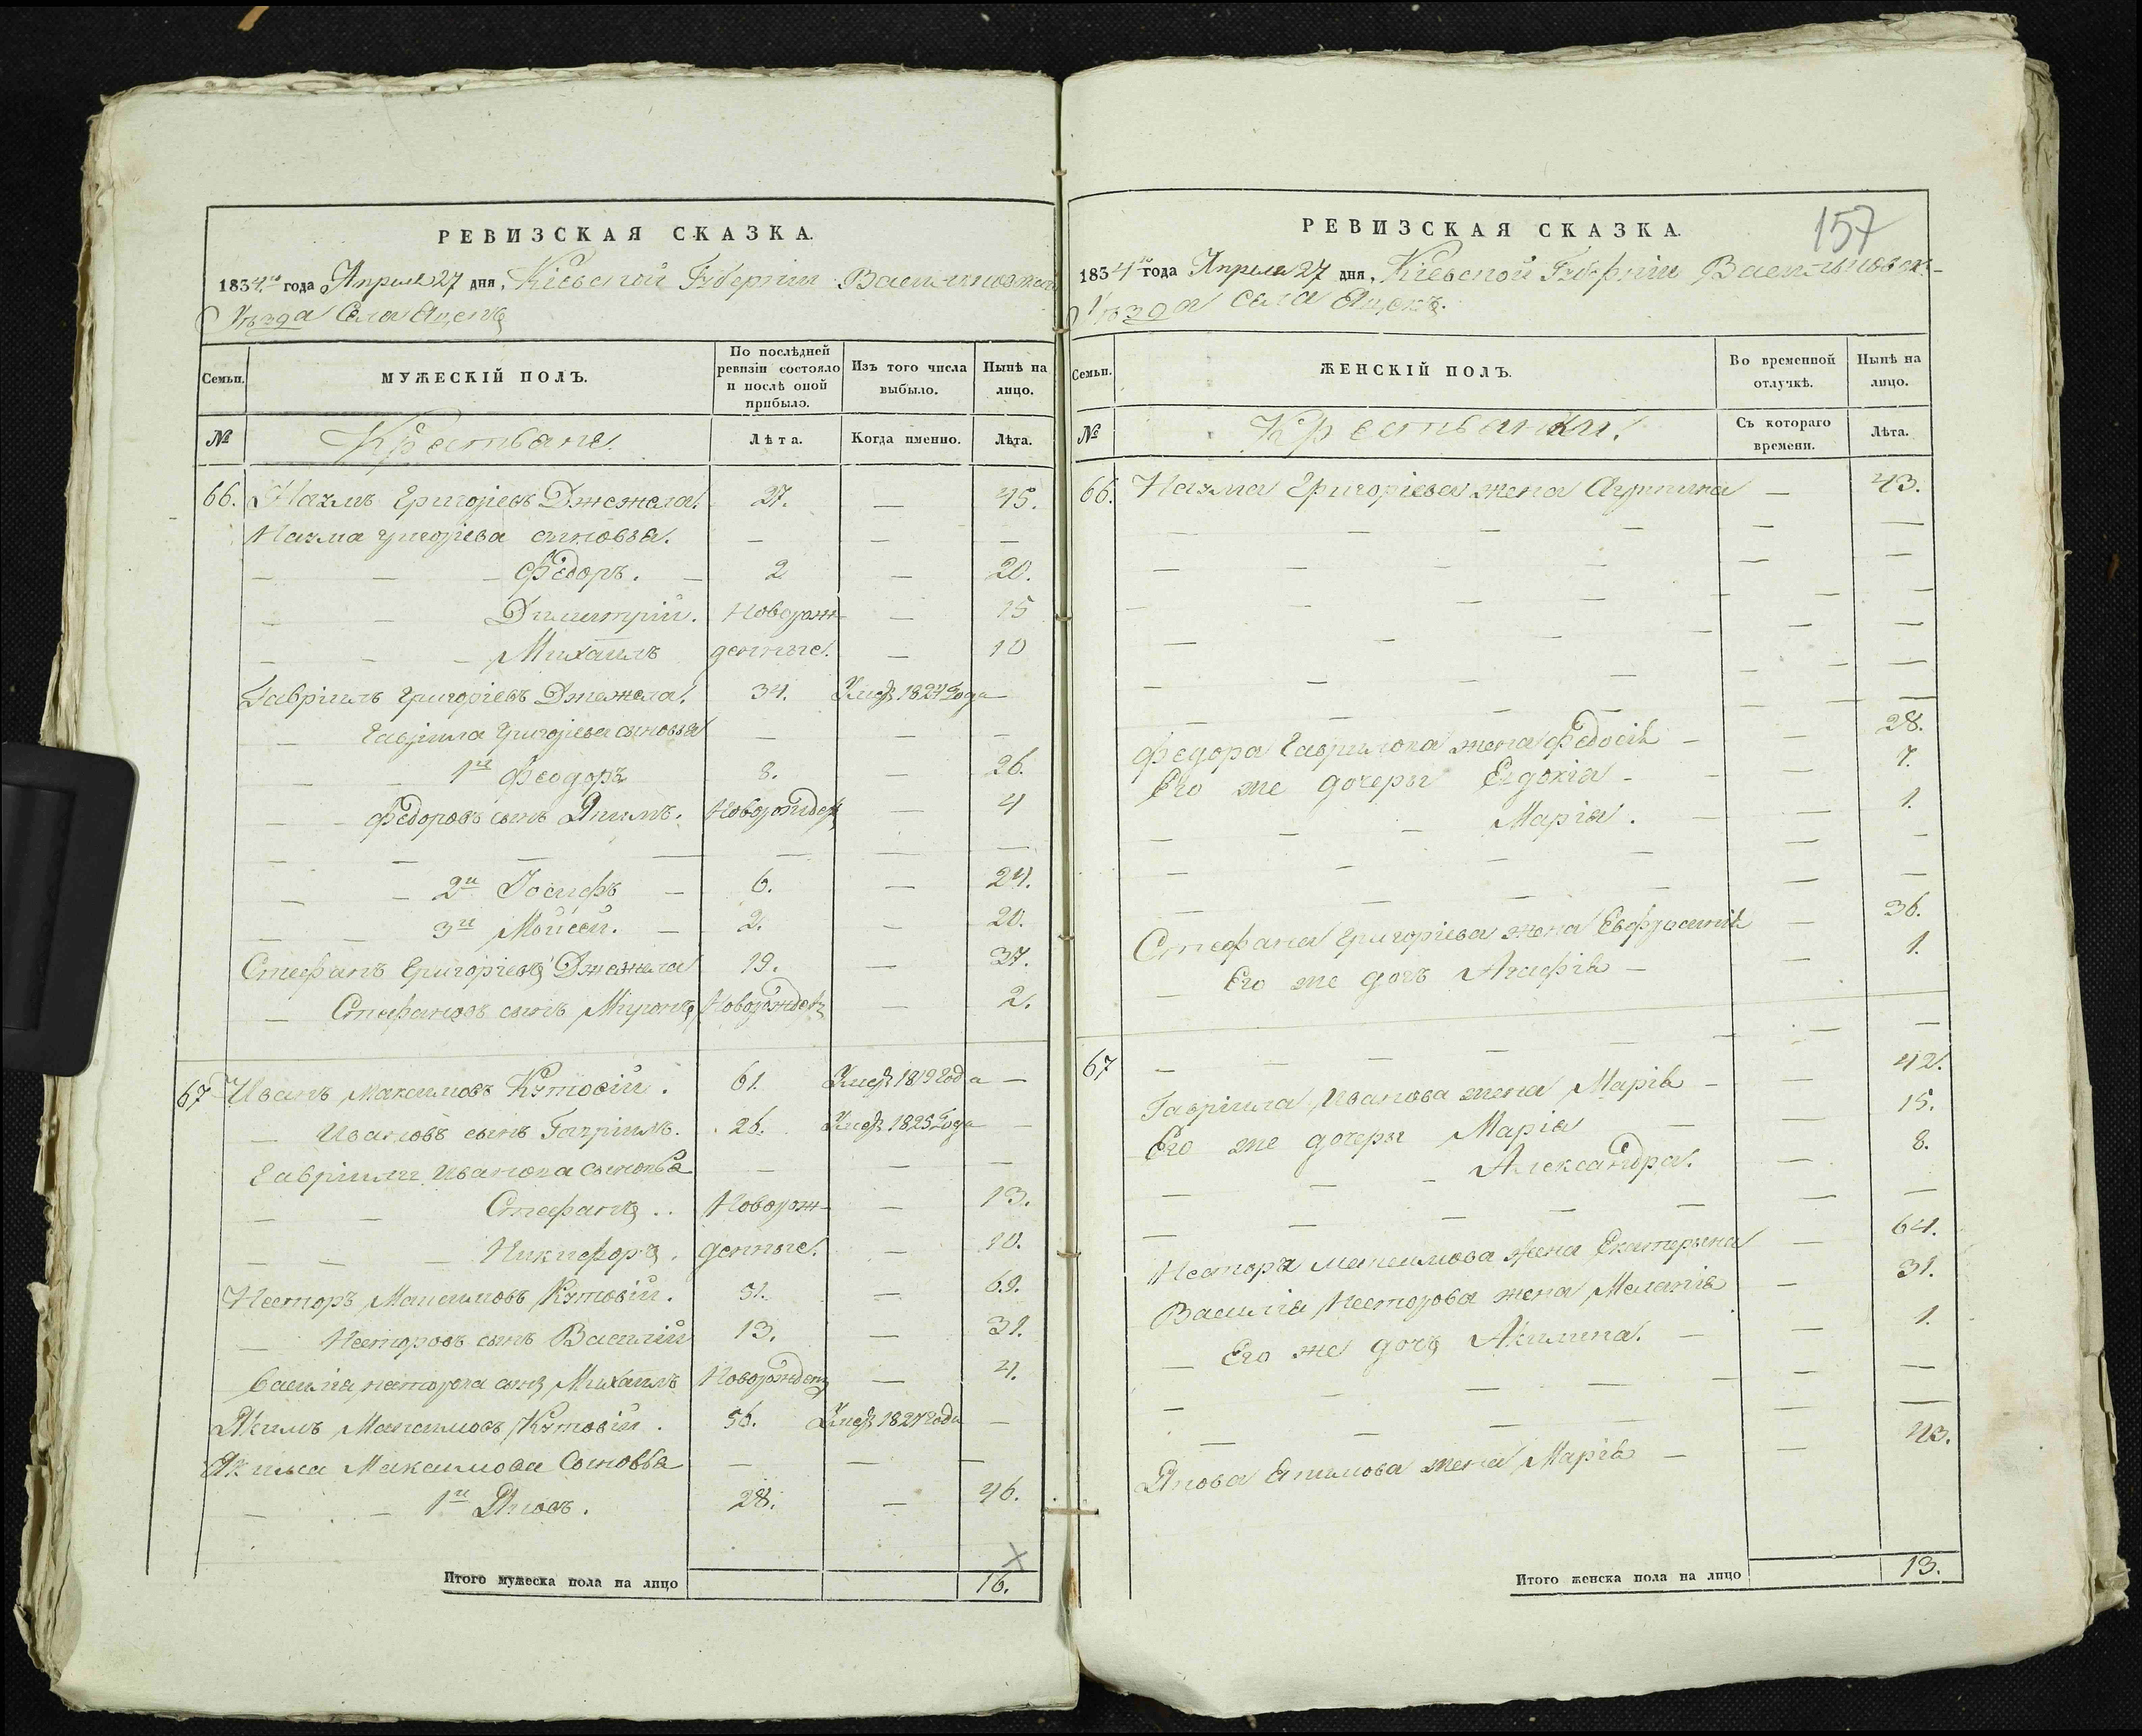 РЕВИЗСКАЯ СКАЗКА.
1834го года Апреля 27 дня, Кіевской Губерніи Васильковскаго
Уѣзда Села Яцекъ
Семьи.
МУЖЕСКІЙ ПОЛЪ.
По послѣдней ревизіи состояло и послѣ оной прибыло.
Изъ того числа выбыло.
Нынѣ на лицо.
№
Крестьяне.
Лѣта.
Когда именно.
Лѣта.
66. Наумъ Григоріевъ Джежела. 27. — 45.
Наума Григоріева сыновья. — — —
— — — Федоръ. — 2 — 20.
— — Димитрій. Новорож- — 15
— — — Михаилъ денные. — 10
Гавріилъ Григоріевъ Джежела. 34. Умеръ 1824 Года —
— Гавріила Григоріева сыновья — — —
— — 1й Феодоръ 8. — 26.
— — Федоровъ сынъ Якимъ. Новорожден — 4
— — — — — — —
— — 2й Іосифъ — 6. — 24.
— — 3й Мойсей. — 2. — 20.
Стефанъ Григоріевъ Джежела 19. — 37.
— Стефановъ сынъ Миронъ Новорожденъ — 2.
67 Иванъ Максимовъ Кутовій. 61. Умеръ 1819 Года —
— Ивановъ сынъ Гавріилъ. 26. Умеръ 1825 Года —
Гавріила Иванова сыновья — — —
— — Стефанъ .. Новорож- — 13.
— — — Никифоръ. денные. — 10.
Несторъ Максимовъ Кутовій. 51. — 69.
— Несторовъ сынъ Василій 13. — 31.
Василія Несторова сынъ Михаилъ Новорожденъ — 4.
Якимъ Максимовъ Кутовій. 56. Умеръ 1827 Года —
Якима Максимова Сыновья — — —
— — 1й Яковъ. 28. — 46.
Итого мужеска пола на лицо 16.
157
РЕВИЗСКАЯ СКАЗКА.
1834го года Апреля 27 дня, Кіевской Губерніи Васильковск-
Уѣзда села Яцекъ.
Семьи.
ЖЕНСКІЙ ПОЛЪ.
Во временной отлучкѣ.
Нынѣ на лицо.
№
Крестьянки.
Съ котораго времени.
Лѣта.
66. Наума Григоріева жена Агрипина — 43.
Федора Гаврилова жена Федосія — — 28.
Его же дочеры Евдокія — — — 7.
— — — Марія. — — 1.
Стефана Григоріева жена Евфросинія — 36.
— Его же дочъ Агафія — — 1.
67
Гавріила Иванова жена Марія — — 42.
Его же дочеры Марія — — 15.
— — — Александра. — 8.
Нестора Максимова жена Екатерына — 64.
Василія Несторова жена Меланія — 31.
— Его же дочъ Акилина. — — 1.
Якова Якимова жена Марія — — 43.
Итого женска пола на лицо 13.